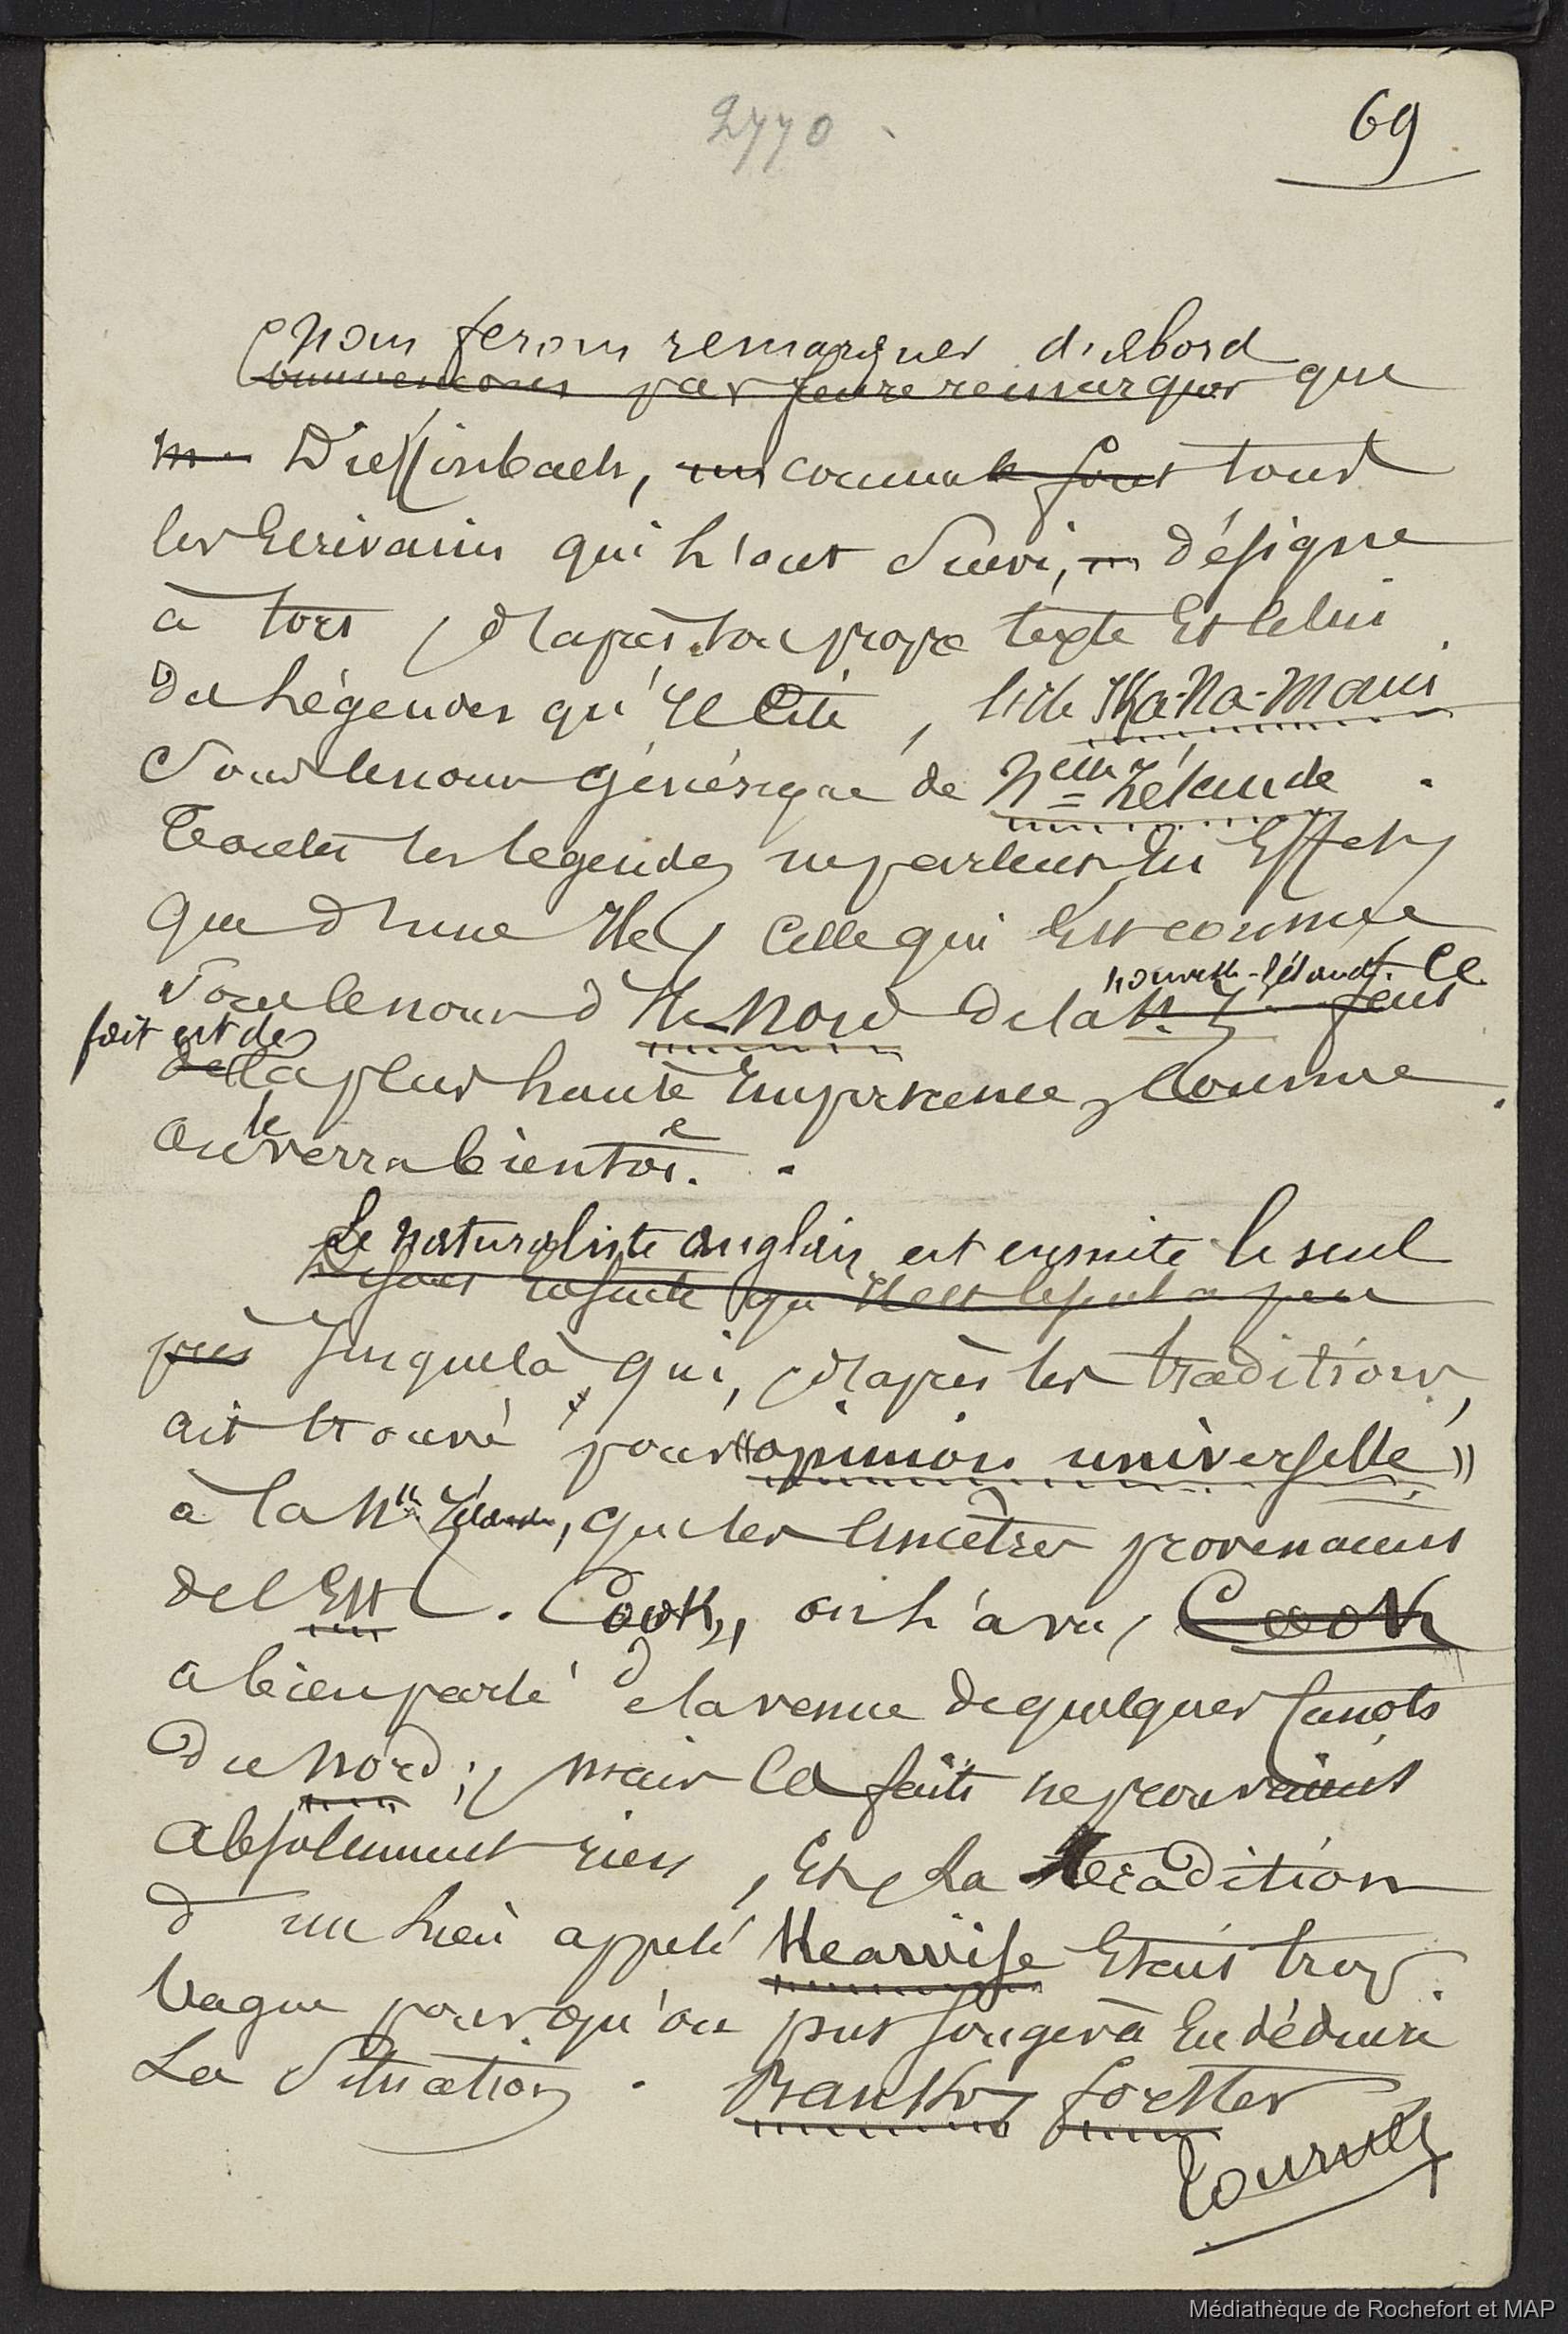 2770
69
Nous ferons remarquer d'abord
Commencons par faire remarquer que
Mr Dieffinbach, comme le font tous
les Ecrivains qui l'ont Suivi, désigne
à tort, d'après son propre texte Et celui
des Légendes qu'Il Cite, l'ile Ika-Na-Maui
Sous le nom générique de Nelle Zélande.
Toutes les legendes ne parlent En Effet,
que d'une Ile, Celle qui Est connue
nouvelle-Zélande. Ce
Sous le nom d'Ile Nord de la N. Z.
fait est de
de la plus haute Importance, Comme
le
on verra bientot.
Le naturaliste anglais est ensuite le seul
Disons Ensuite qu'Il est le seul a peu
près jusque là, qui, d'après les traditions,
ait trouvé pour "opinion universelle"
à la Nlle Zélande, que les Ancêtres provenaient
de l'Est. Cook, on l'a vu, Cook
a bien parlé de la venue de quelques Canots
du Nord; mais ces faits ne prouvaient
absolument rien, Et, La tradition
d'un Lieu appelé Heawise Etait trop
Vague pour qu'on put songer à En déduire
La Situation. Banks, forster
tournez
Médiathèque de Rochefort et MAP